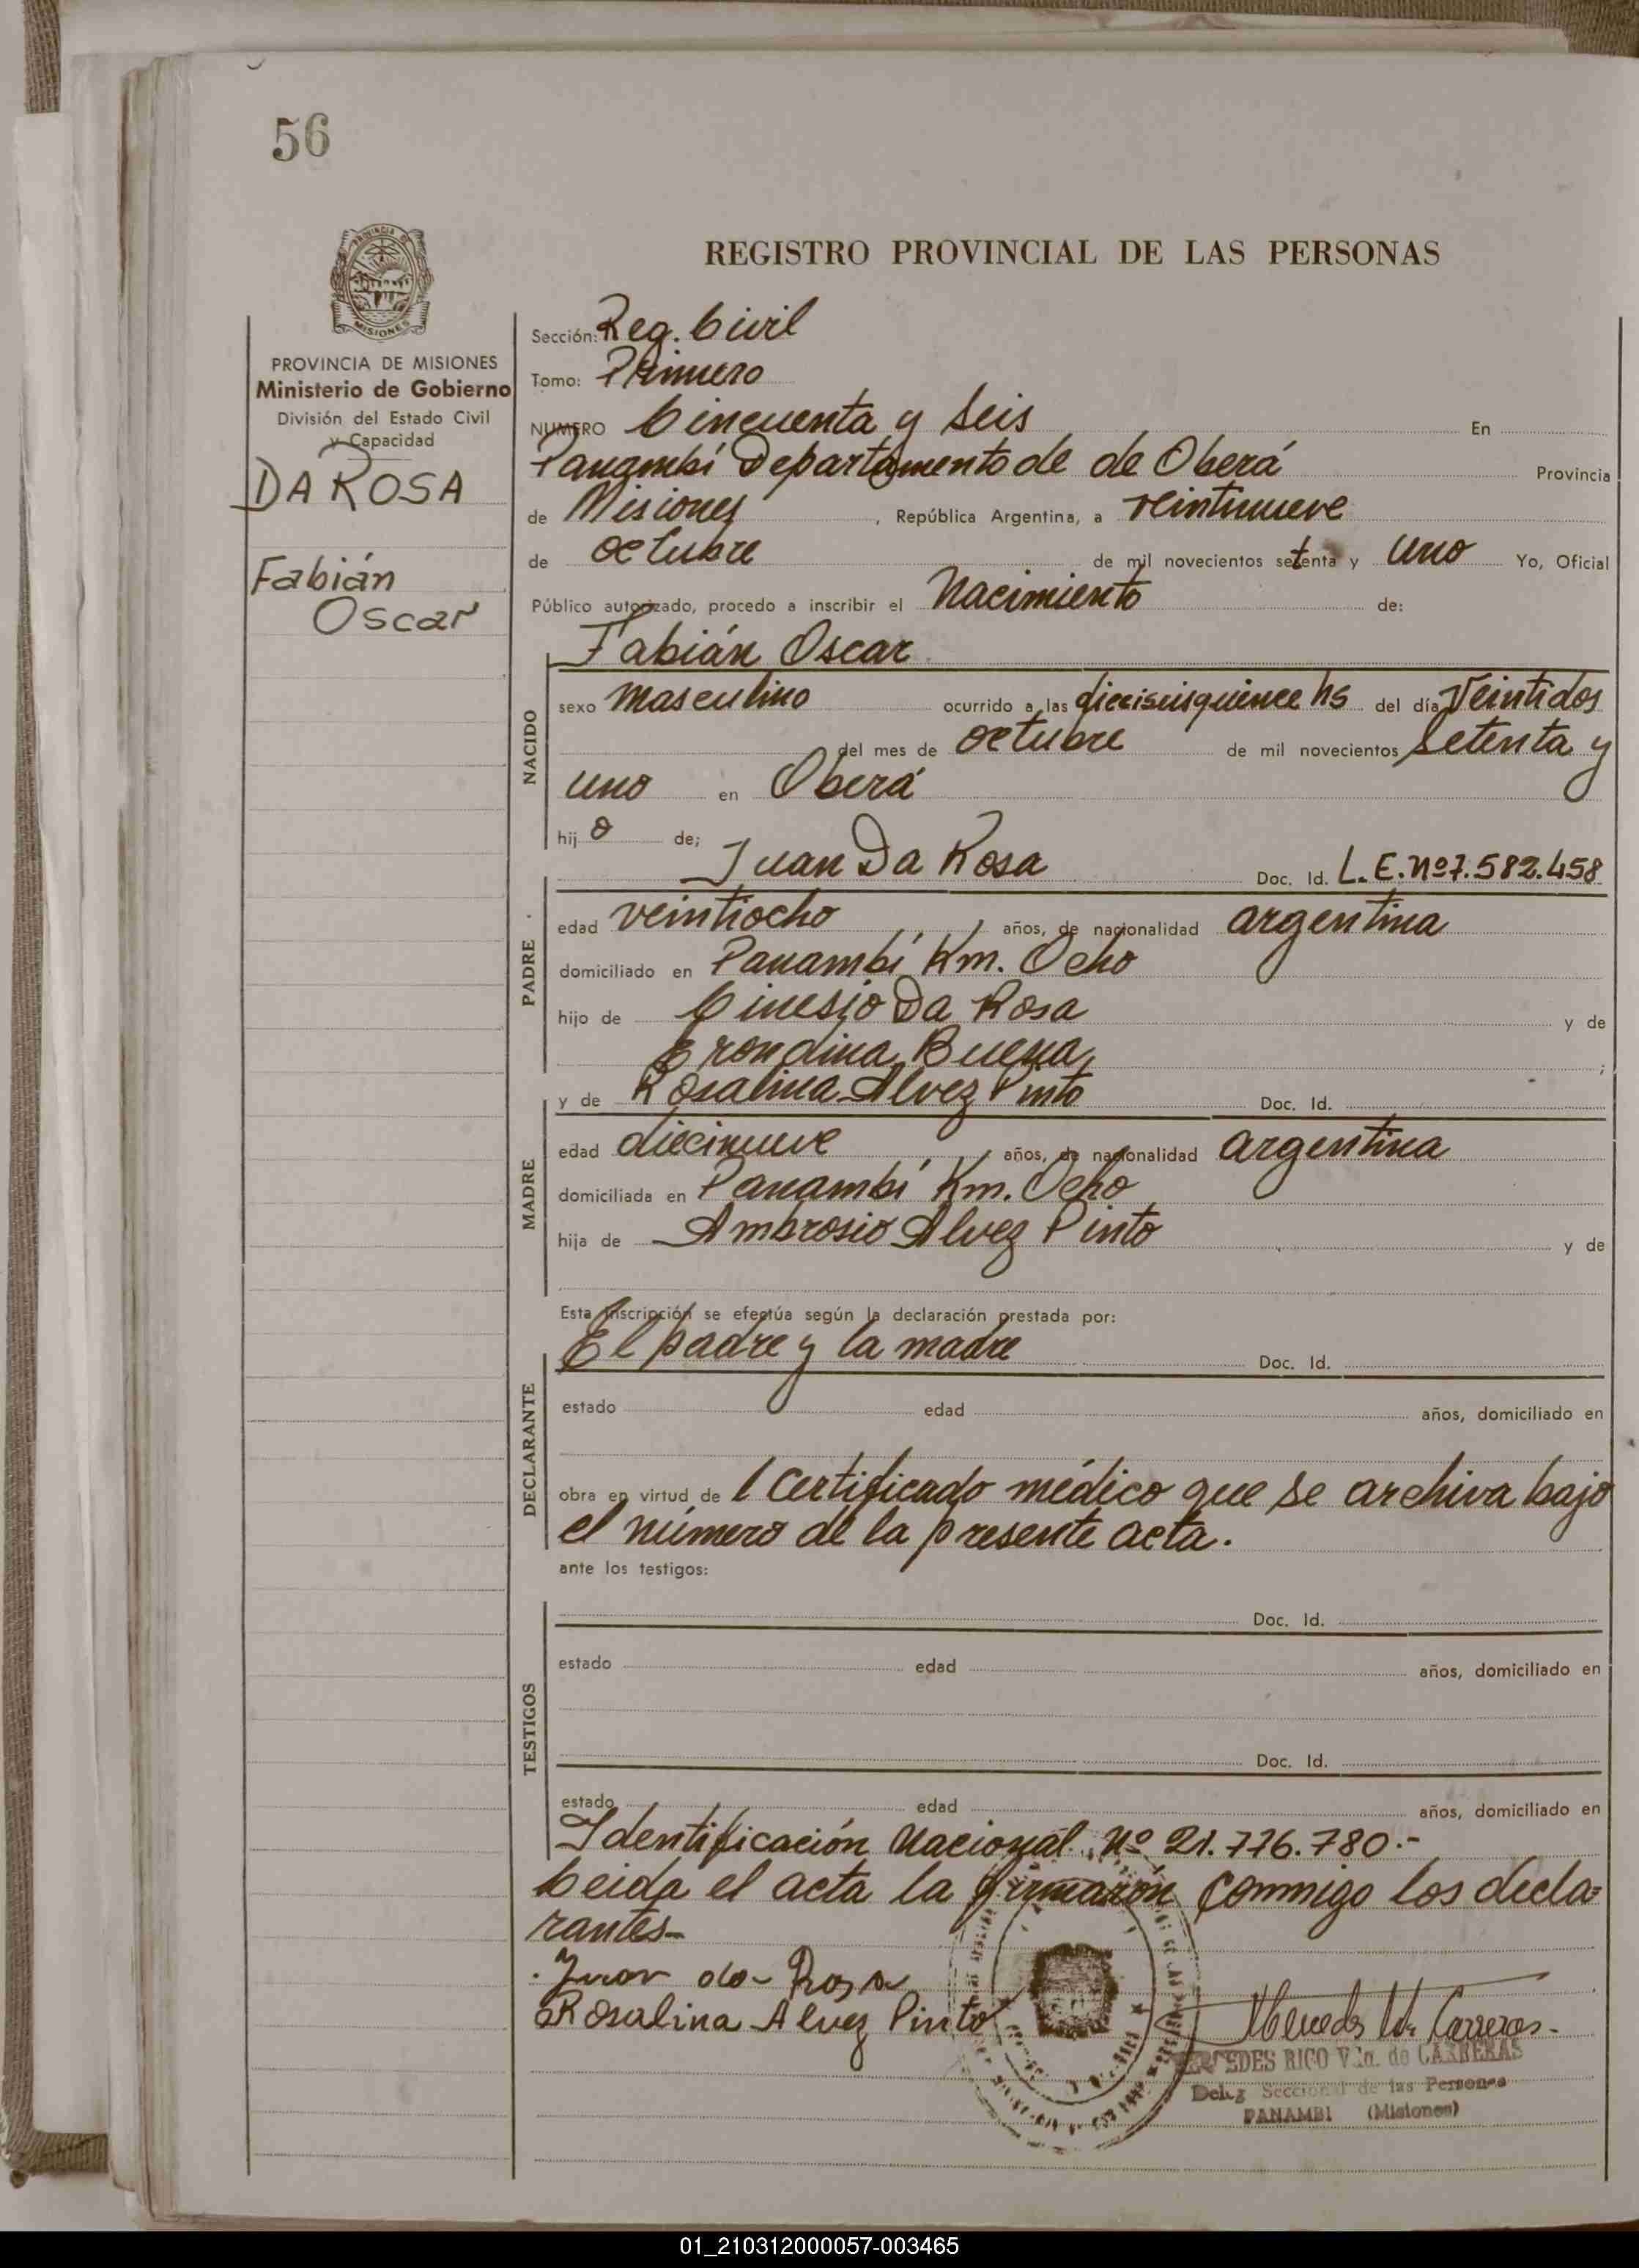 56
PROVINCIA DE
MISIONES
REGISTRO PROVINCIAL DE LAS PERSONAS
PROVINCIA DE MISIONES
Ministerio de Gobierno
División del Estado Civil
y Capacidad
DA ROSA
Fabián
Oscar
Sección: Reg. Civil
Tomo: Primero
NUMERO Cincuenta y Seis En
Panambí Departamento de de Oberá Provincia
de Misiones, República Argentina, a veintinueve
de octubre de mil novecientos setenta y uno Yo, Oficial
Público autorizado, procedo a inscribir el Nacimiento de:
Fabián Oscar
NACIDO
sexo masculino ocurrido a las dieciseisquince hs del día Veintidos
del mes de octubre de mil novecientos Setenta y
uno en Oberá
hijo de;
PADRE
Juan Da Rosa Doc. Id. L.E. Nº 7.582.458
edad veintiocho años, de nacionalidad argentina
domiciliado en Panambí Km. Ocho
hijo de Cinesio Da Rosa y de
Erondina Buena;
MADRE
y de Rosalina Alvez Pinto Doc. Id.
edad diecinueve años, de nacionalidad argentina
domiciliada en Panambí Km. Ocho
hija de Ambrosio Alvez Pinto y de
Esta inscripción se efectúa según la declaración prestada por:
DECLARANTE
El padre y la madre Doc. Id.
estado edad años, domiciliado en
obra en virtud de l Certificado médico que se archiva bajo
el número de la presente acta.
ante los testigos:
TESTIGOS
Doc. Id.
estado edad años, domiciliado en
Doc. Id.
estado edad años, domiciliado en
Identificación Nacional Nº 21.776.780.-
Leida el acta la firmarón conmigo los decla=
rantes-
Juan da Rosa
Rosalina Alvez Pinto
Mercedes Vda. Carreras-
MERCEDES RICO Vda. de CARRERAS
Deleg Seccional de las Personas
PANAMBI (Misiones)
01_210312000057-003465